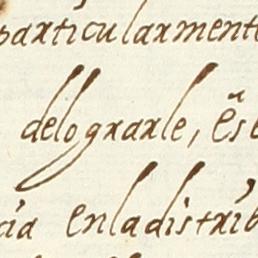 particularmente
delograrle, ẽs
cia enladistrib